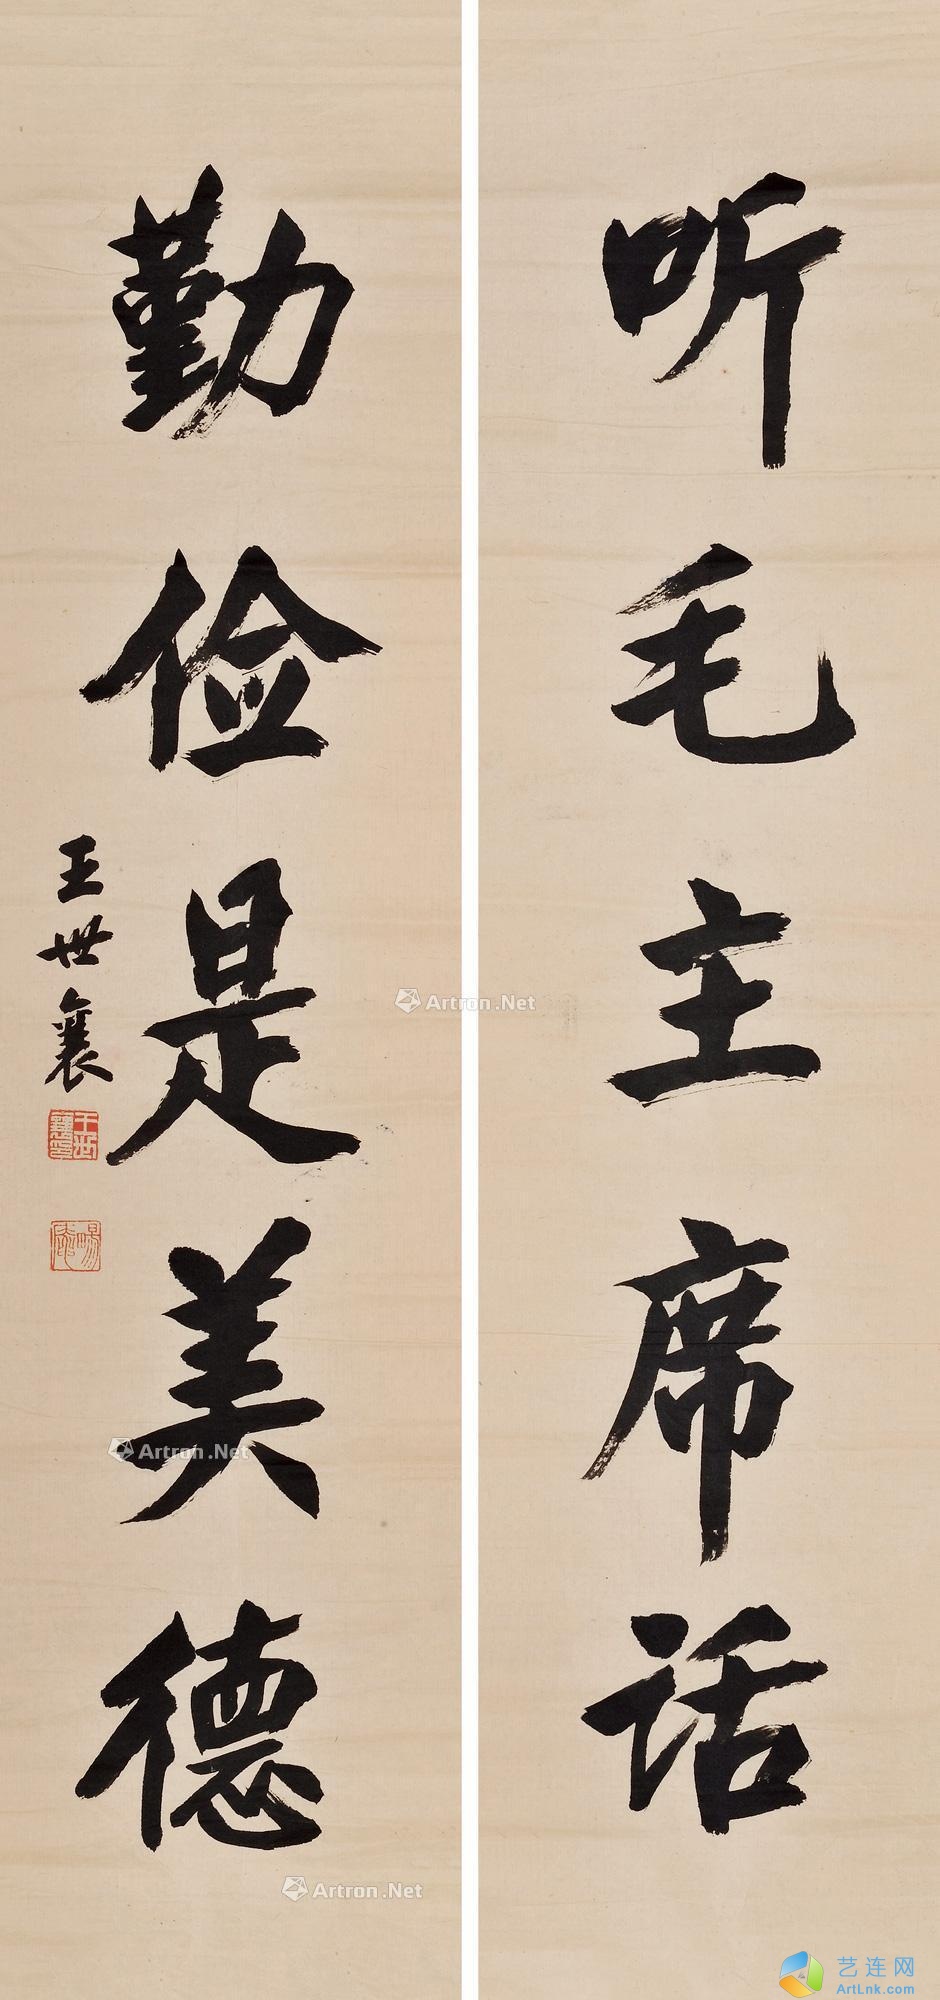 听毛主席话
勤俭是美德
王世襄
王世襄印
畅安
Artron.Net
Artron.Net
Artron.Net
艺连网
ArtLnk.com